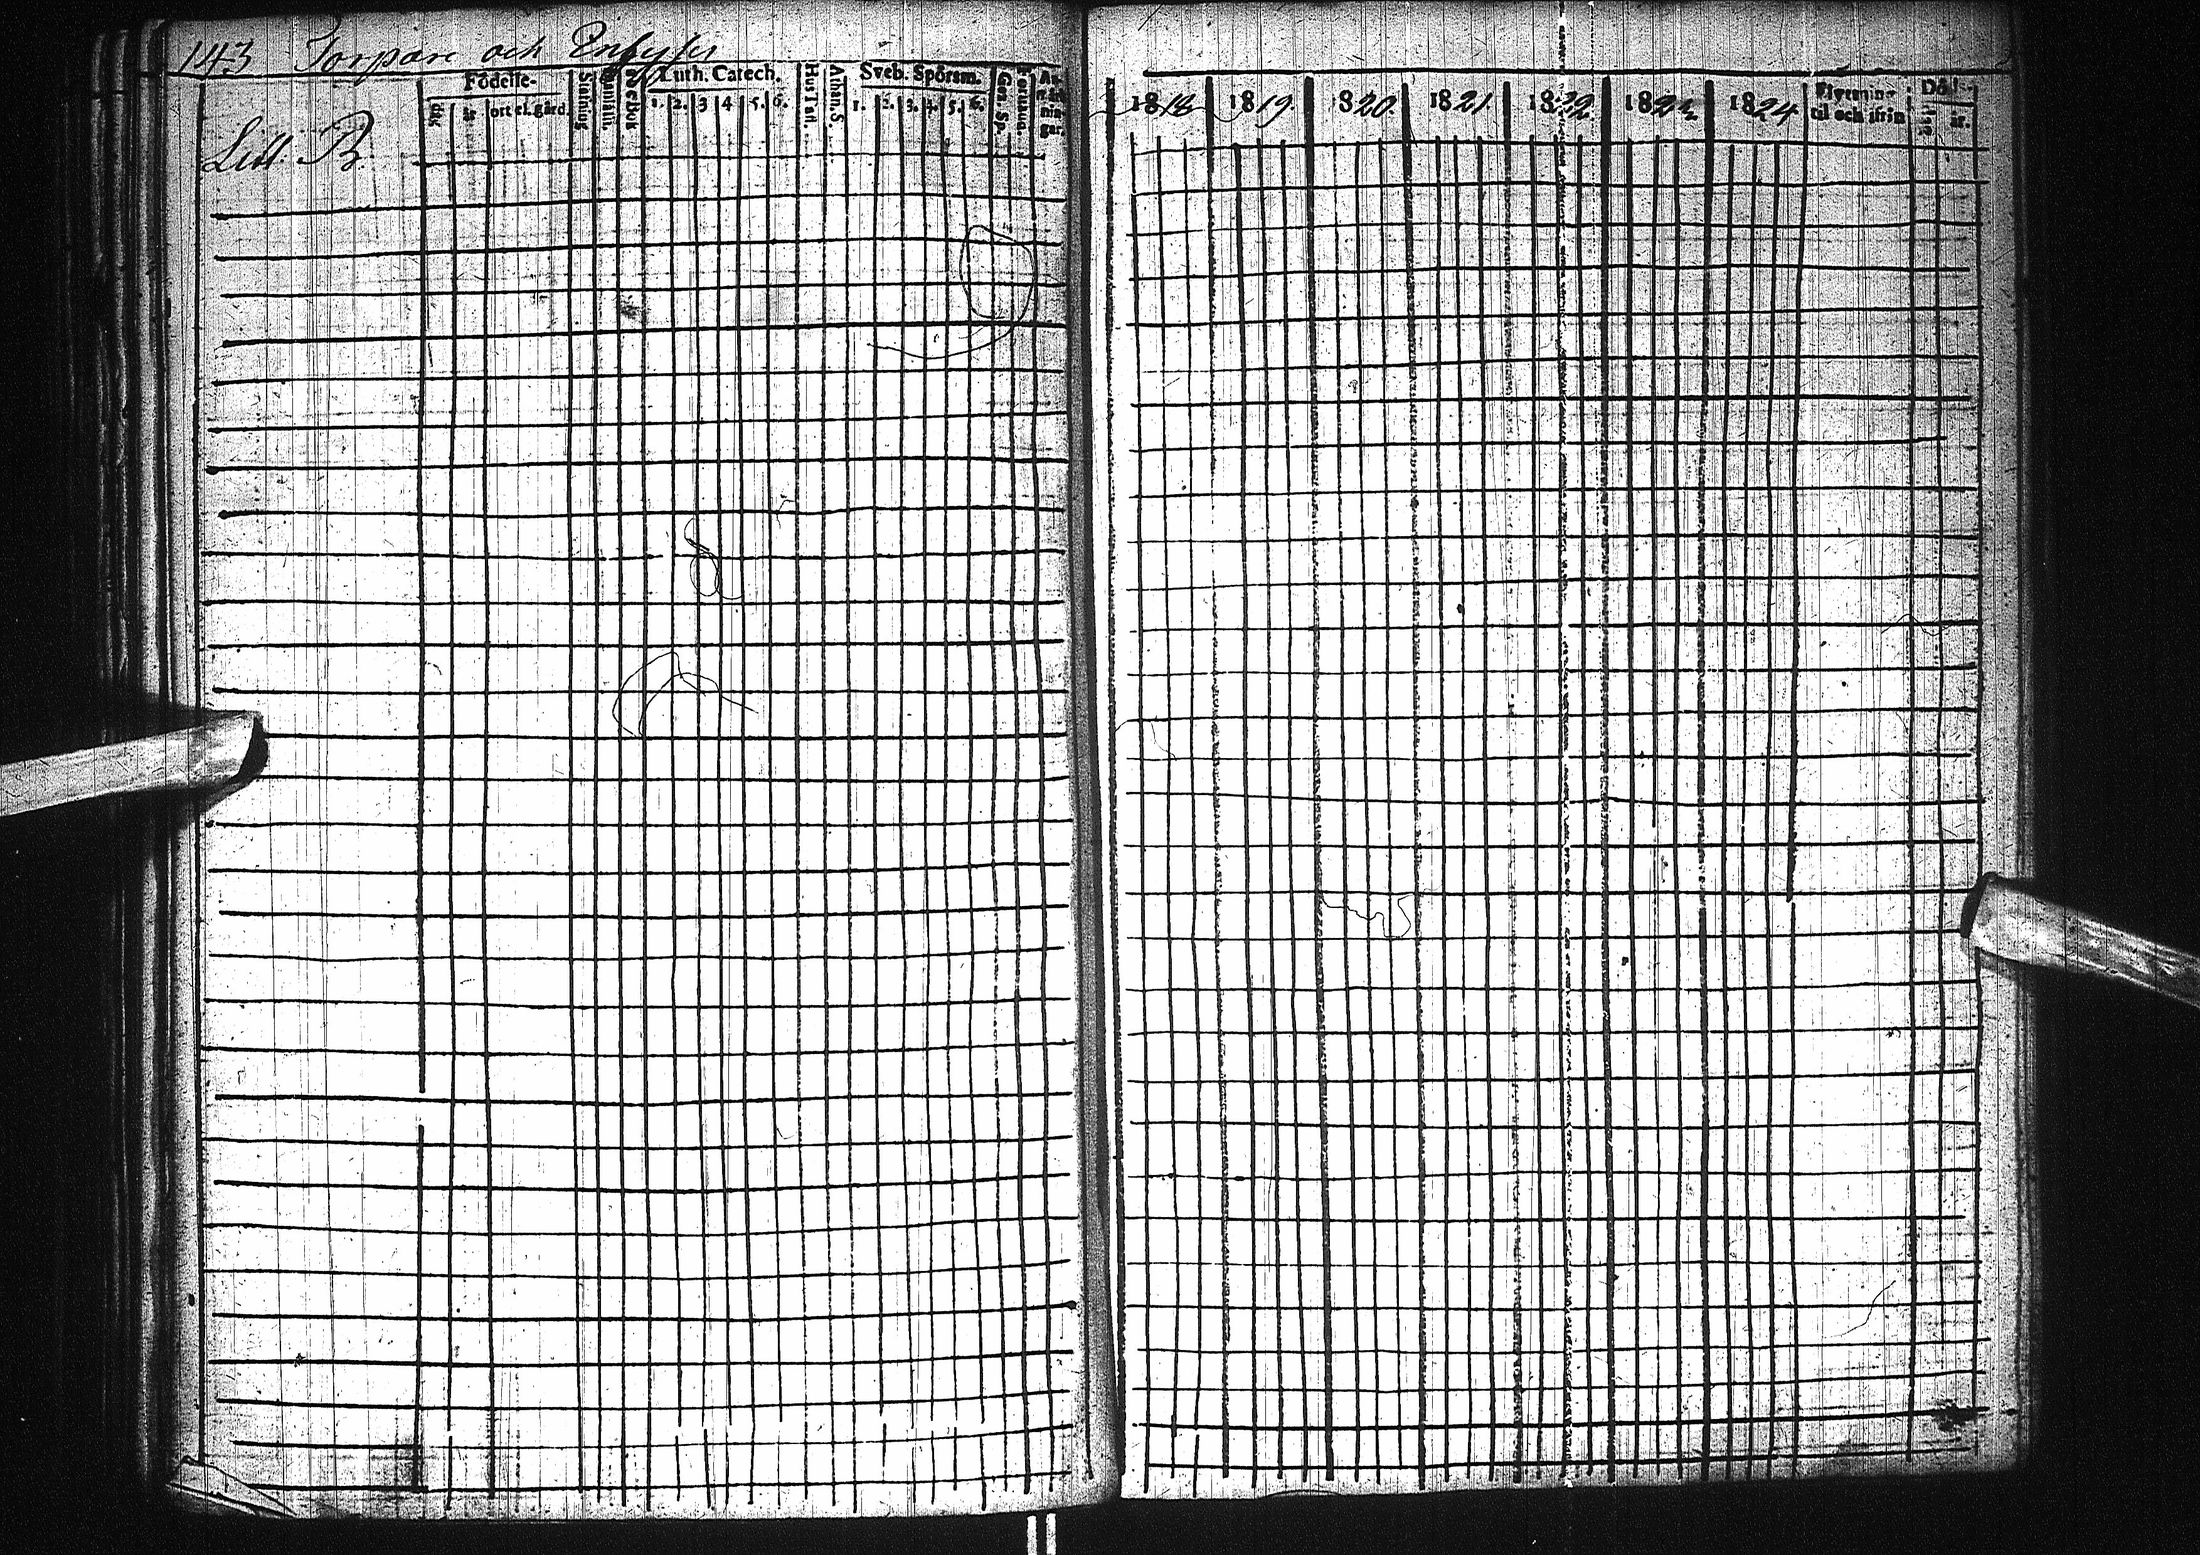 143 Torpare och
Litt. B.
Födelse-
dag år ort el. gård.
Stafning
Luth. Catech.
1. 2. 3 4 5. 6.
Hus Tafl.
Athan. S.
Sveb. Spörsm.
1. 2. 3. 4. 5. 6.
Gen. Sp.
An-
märk
nin-
gar.
1818 1819. 1820. 1821. 1822. 1823 1824
Flyttning
til och ifrån
Död
år.